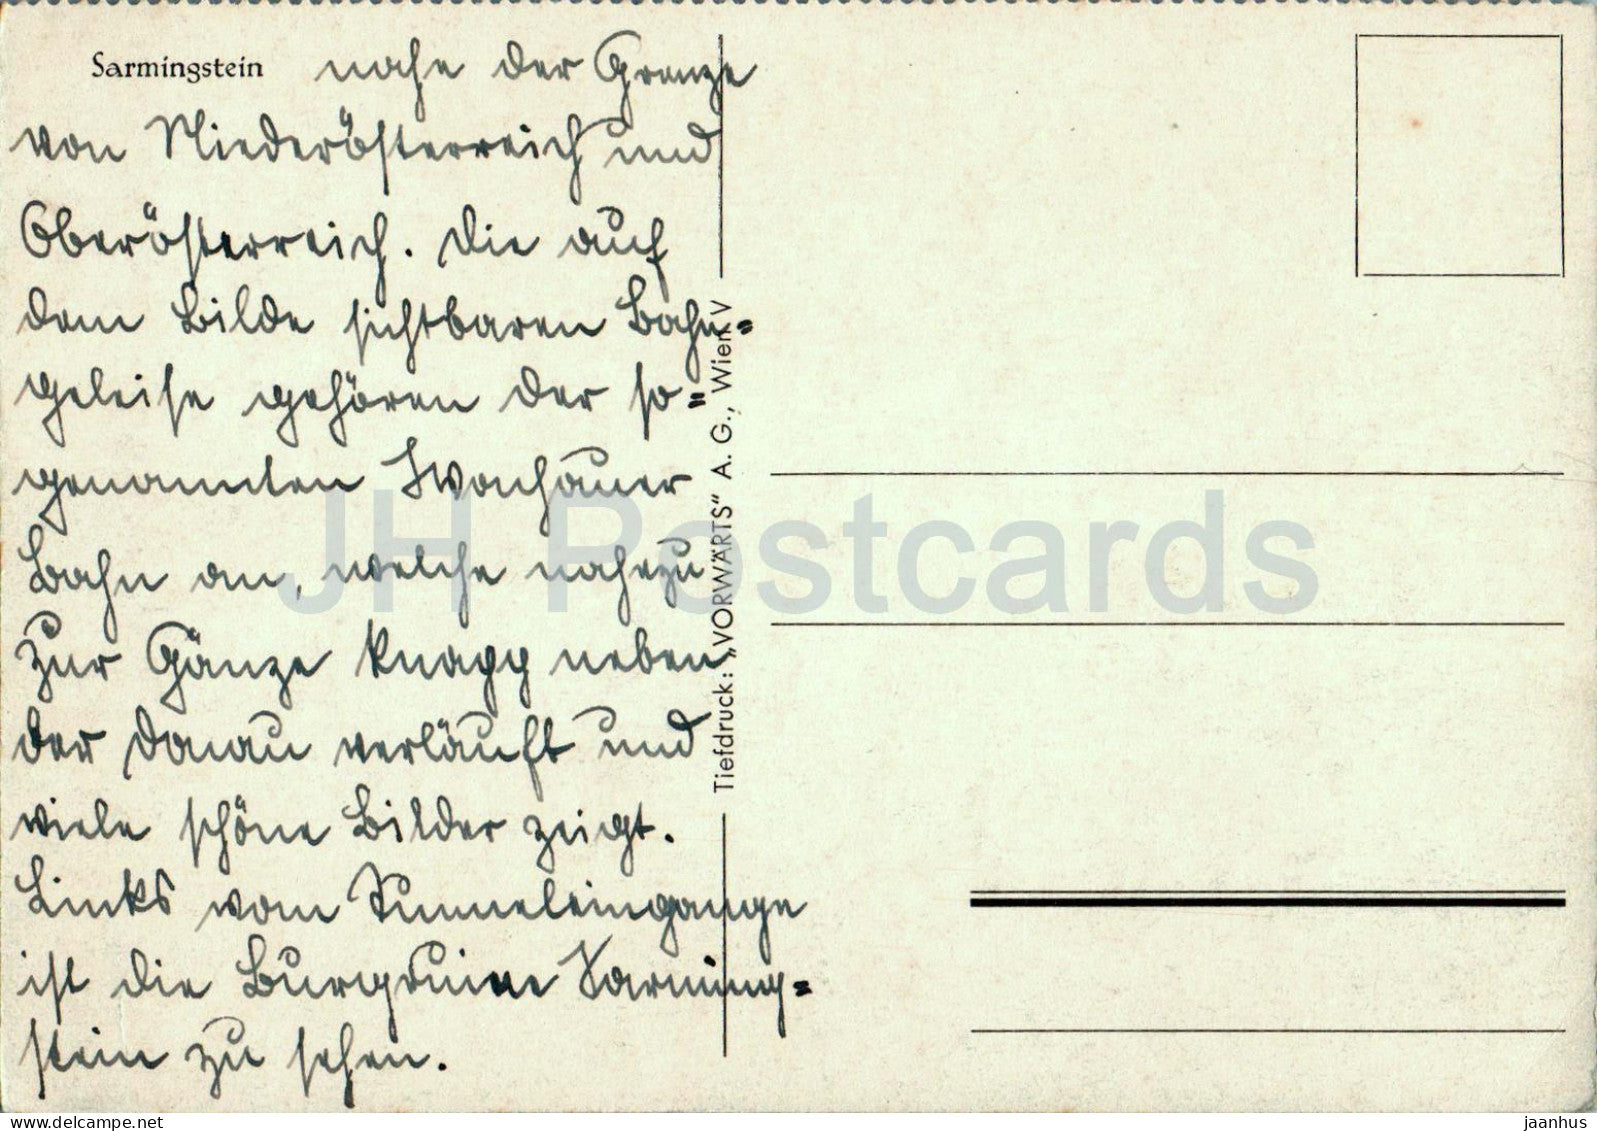 Sarmingstein nahe der Grenze
von Niederösterreich und
Oberösterreich. Die auf
dem Bilde sichtbaren Bahn=
geleise gehören der so=
genannten Wachauer
Bahn an, welche nahezu
zur Gänze knapp neben
der Donau verläuft und
viele schöne Bilder zeigt.
Links vom Tunneleingange
ist die Burgruine Sarming=
stein zu sehen.
Tiefdruck: „VORWÄRTS“ A. G., Wien V
JH Postcards
www.delcampe.net
jaanhus